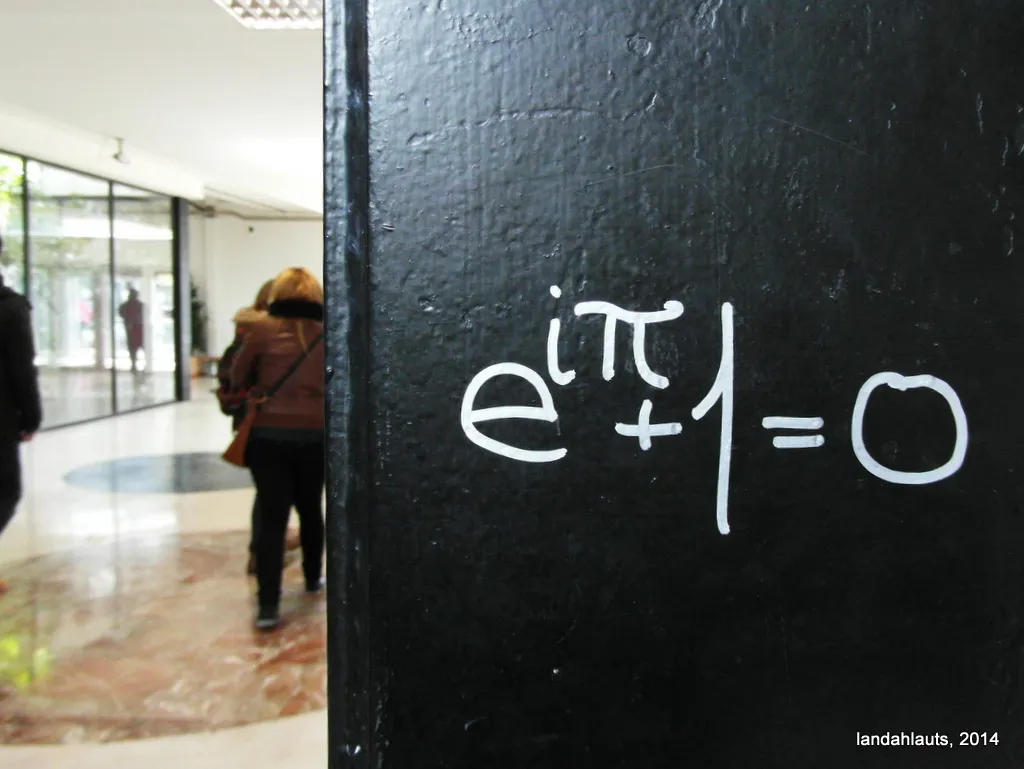 e^{iπ}+1=0
landahlauts, 2014